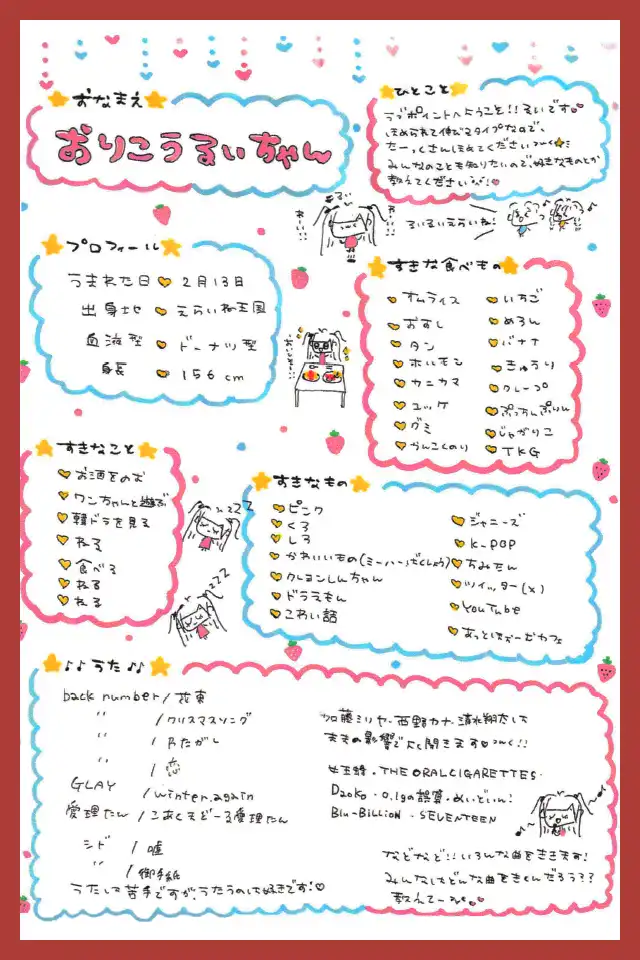 おなまえ
おりこうるぃちゃん
ひとこと
ラブポイントへようこそ!!るいです
ほめられて伸びるタイプなので、
たーっくさんほめてください
みんなのことも知りたいので、好きなものとか
教えてください!
るぃ
わーい
わーい
るいるいえらいね!
プロフィール
うまれた日 2月13日
出身地 えらいね王国
血液型 ドーナツ型
身長 156cm
すきな食べもの
オムライス
おすし
タン
ホルモン
カニカマ
ユッケ
グミ
かんこくのり
いちご
めろん
バナナ
きゅうり
クレープ
ぷっちんぷりん
じゃがりこ
TKG
すきなこと
お酒をのむ
ワンちゃんと遊ぶ
韓ドラを見る
ねる
食べる
ねる
ねる
zzz
zzz
すきなもの
ピンク
くろ
しろ
かわいいもの(ミーハーばくしょう)
クレヨンしんちゃん
ドラえもん
こわい話
ジャニーズ
K-POP
ちみたん
ツイッター(X)
YouTube
あっとほぉーむカフェ
♪♪うた♪♪
back number/花束
〃 /クリスマスソング
〃 /わたがし
〃 /恋
GLAY /winter,again
愛理たん/こあくまどーる愛理たん
シド /嘘
〃 /御手紙
うたは苦手ですが、うたうのは好きです!♡
加藤ミリヤ・西野カナ・清水翔太は
ままの影響でよく聞きます!!
女王蜂・THE ORAL CIGARETTES・
Daoko・0.1gの誤算・めいどいん!
Blu-BiLLioN・SEVENTEEN
などなど!!いろんな曲をききます!
みんなはどんな曲をきくんだろう??
教えてー